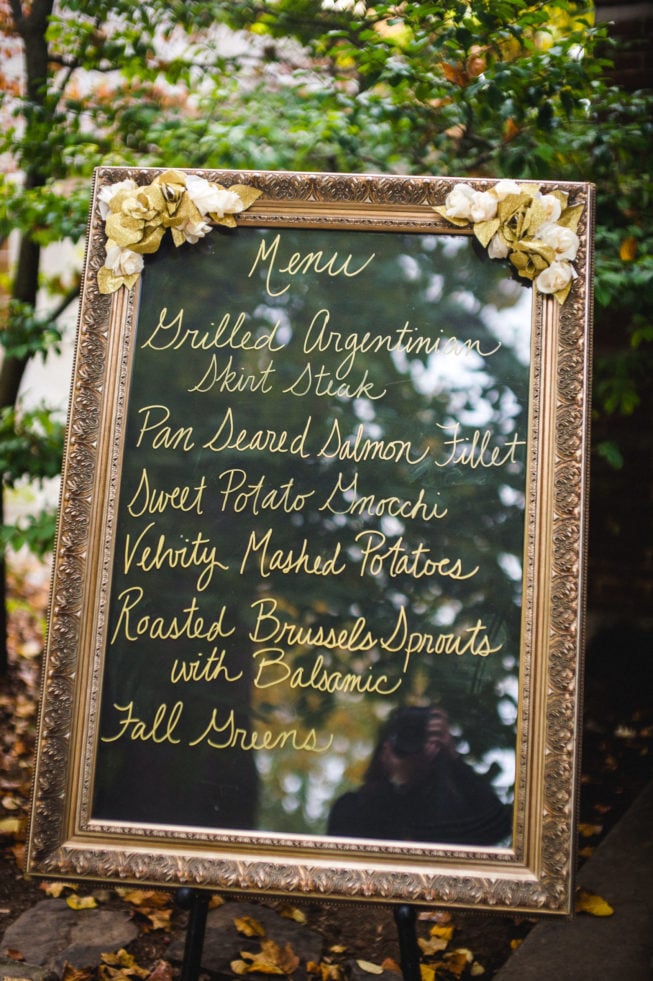 Menu
Grilled Argentinian
Skirt Steak
Pan Seared Salmon Fillet
Sweet Potato Gnocchi
Velvity Mashed Potatoes
Roasted Brussels Sprouts
with Balsamic
Fall Greens